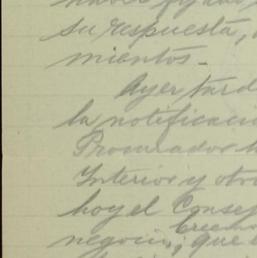 su respuesta,
mientos.-
Ayer tard
la notificaci
Procurador
Interior y otr
hoy el Consej
negocio, que